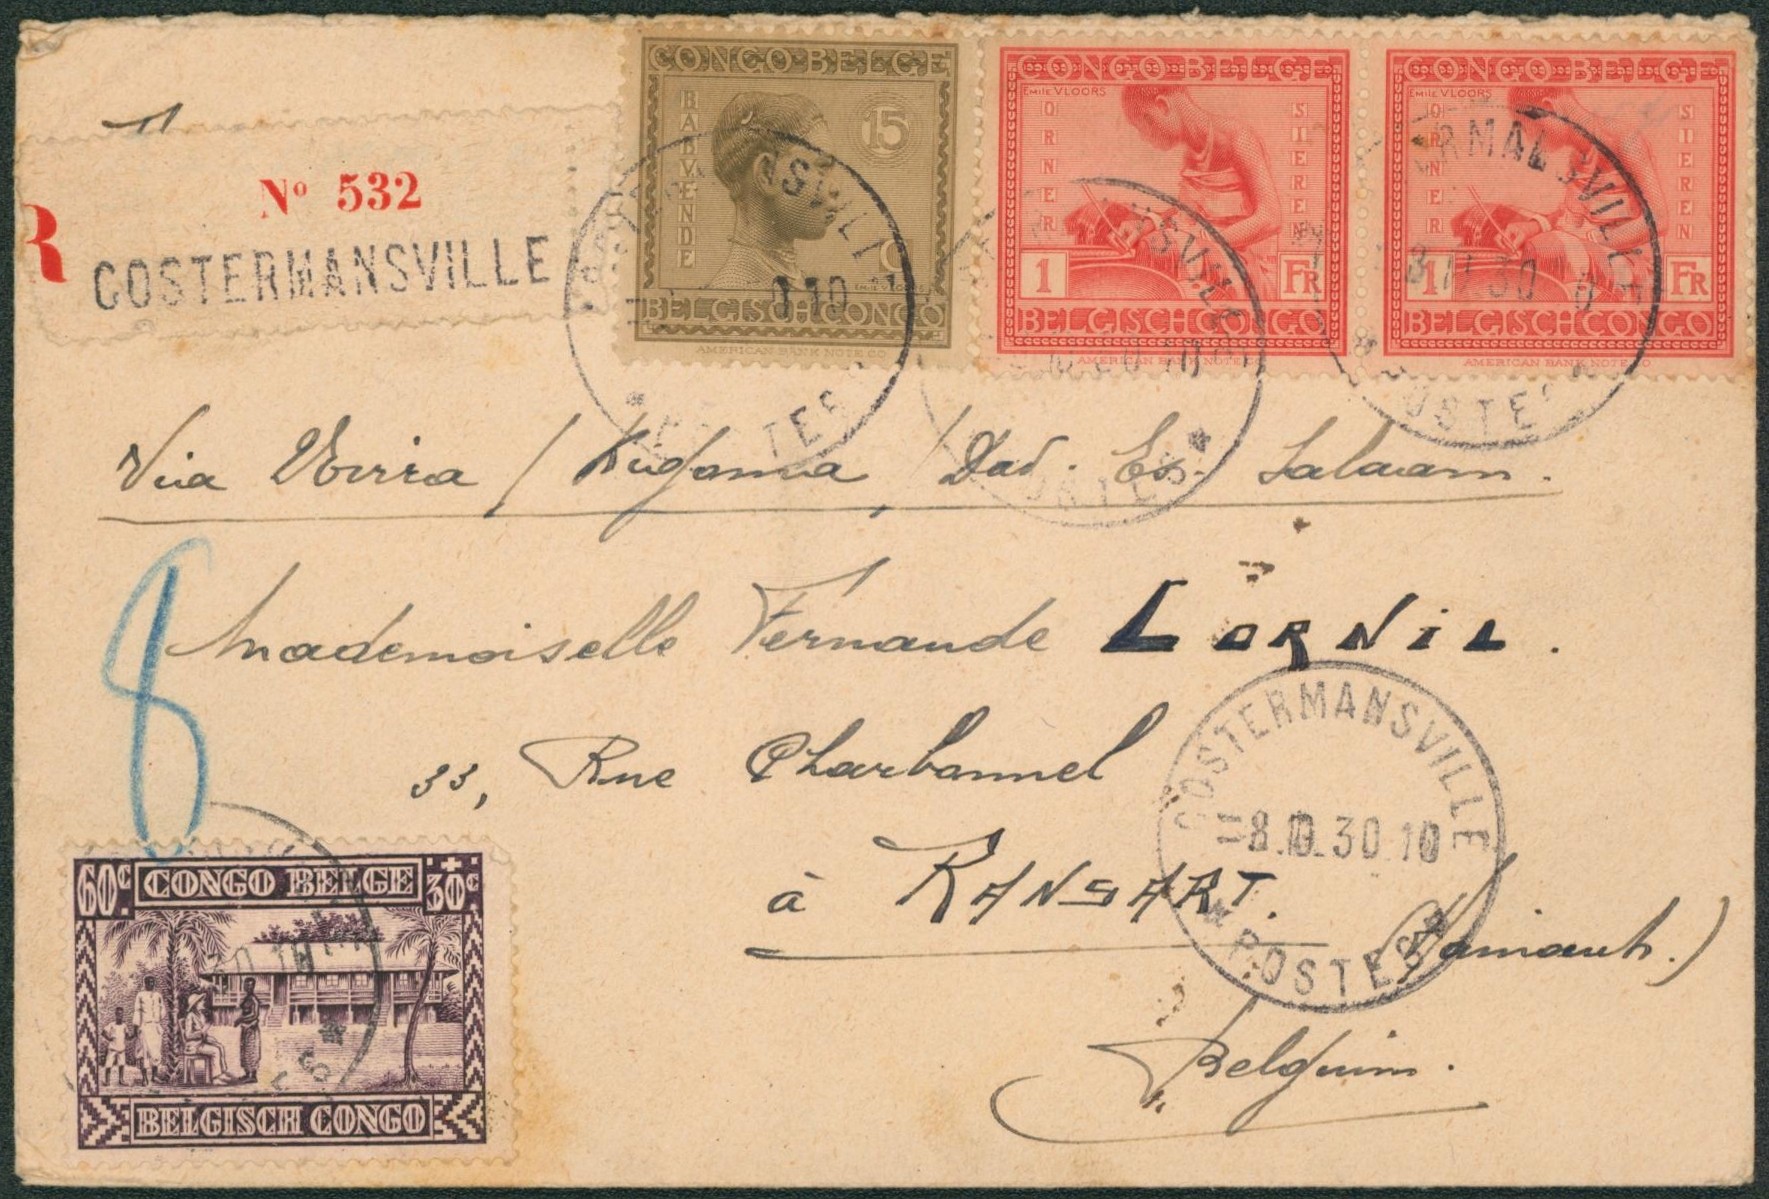 R
Nº 532
COSTERMANSVILLE
CONGO BELGE
BABUENDE
15
C
EMILE VLOORS
BELGISCH CONGO
AMERICAN BANK NOTE CO
CONGO BELGE
EMILE VLOORS
ORNER
SIEREN
1 FR
BELGISCH CONGO
AMERICAN BANK NOTE CO
CONGO BELGE
EMILE VLOORS
ORNER
SIEREN
1 FR
BELGISCH CONGO
AMERICAN BANK NOTE CO
POSTES
Via Uvira / Kigoma / Dad. Es. Salaam.
8
Mademoiselle Fernande CORNIL.
33, Rue Charbonnel
à RANSART.
(Hainaut.)
Belgium.
COSTERMANSVILLE
30.10
* POSTES *
60c CONGO BELGE +30c
BELGISCH CONGO